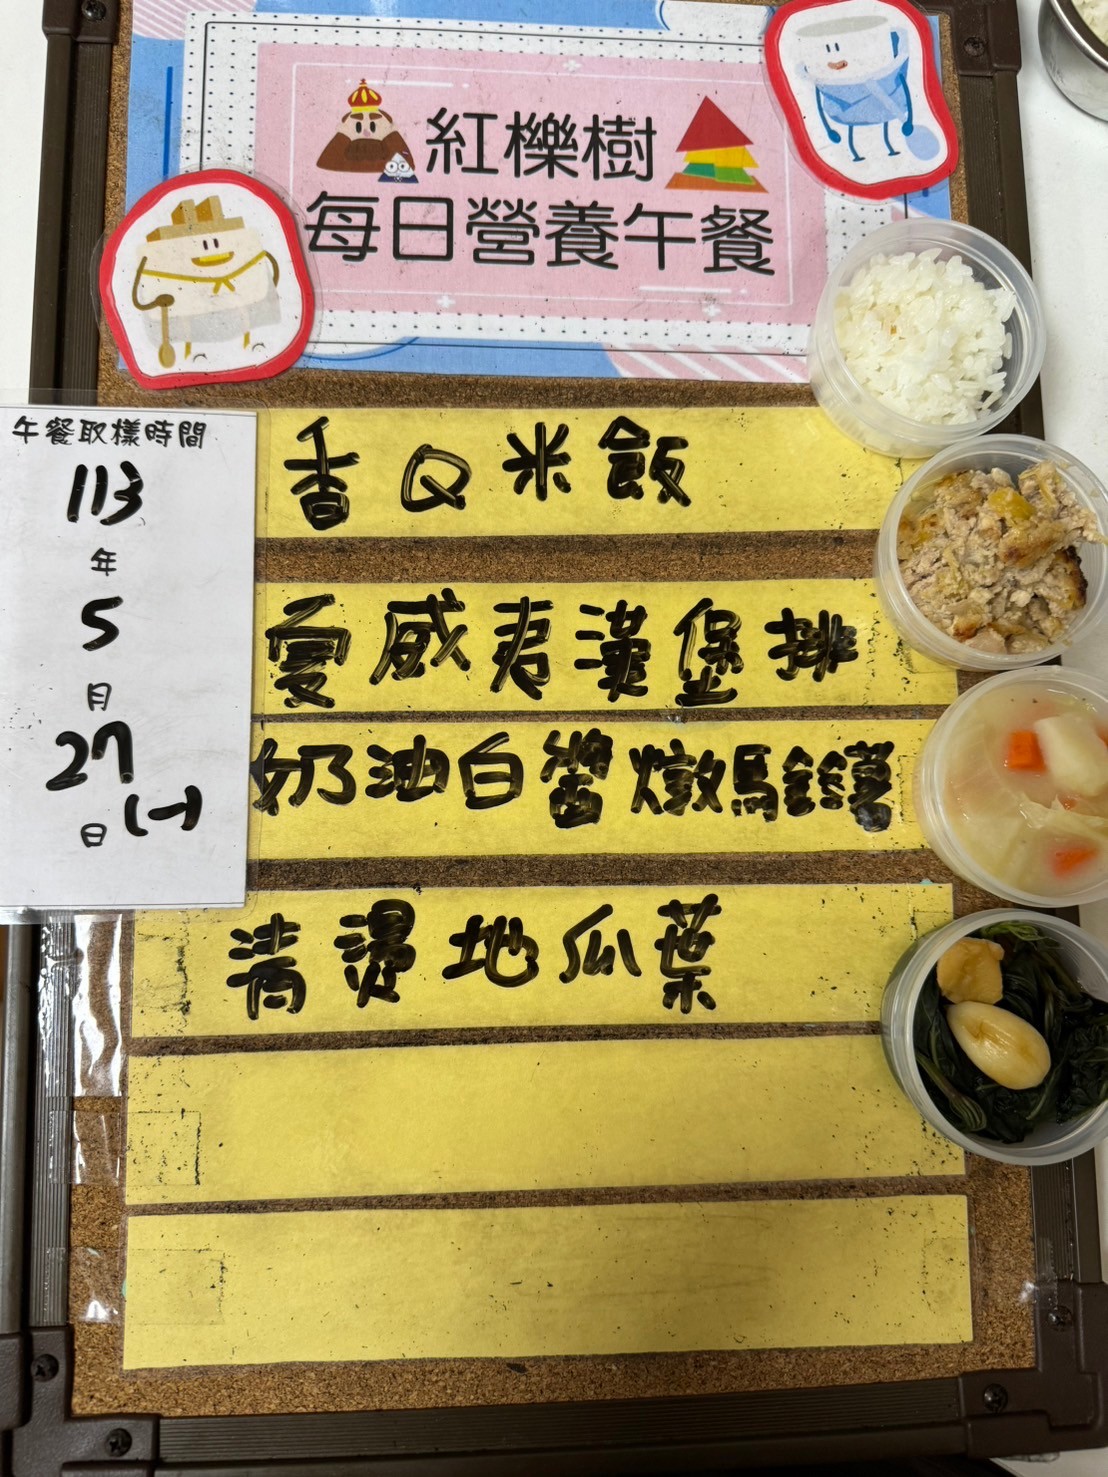 紅櫟樹
每日營養午餐
午餐取樣時間
113
年
5
月
27
日 (一)
香Q米飯
夏威夷漢堡排
奶油白醬燉馬鈴薯
清燙地瓜葉